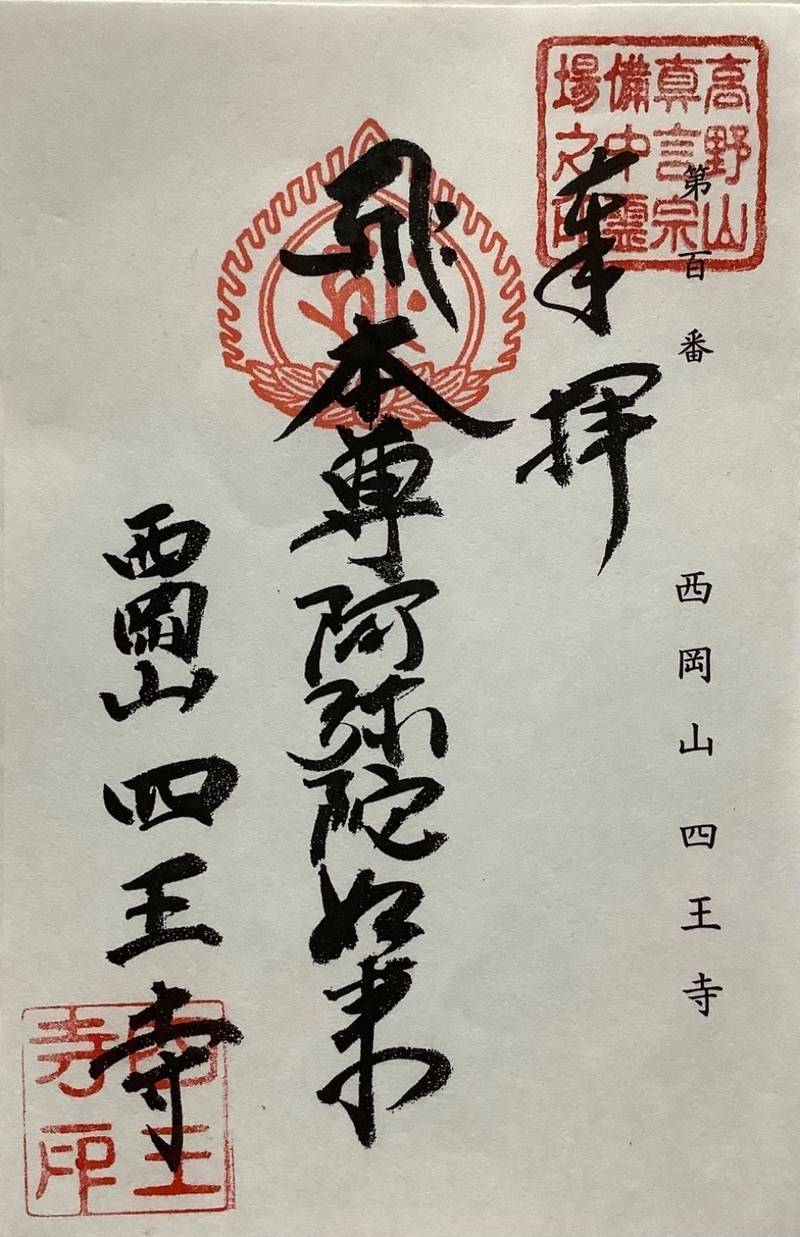 高野山
真言宗
備中霊
場之印
第百番 西岡山 四王寺
奉拝
本尊阿弥陀如来
西岡山 四王寺
四王
寺印